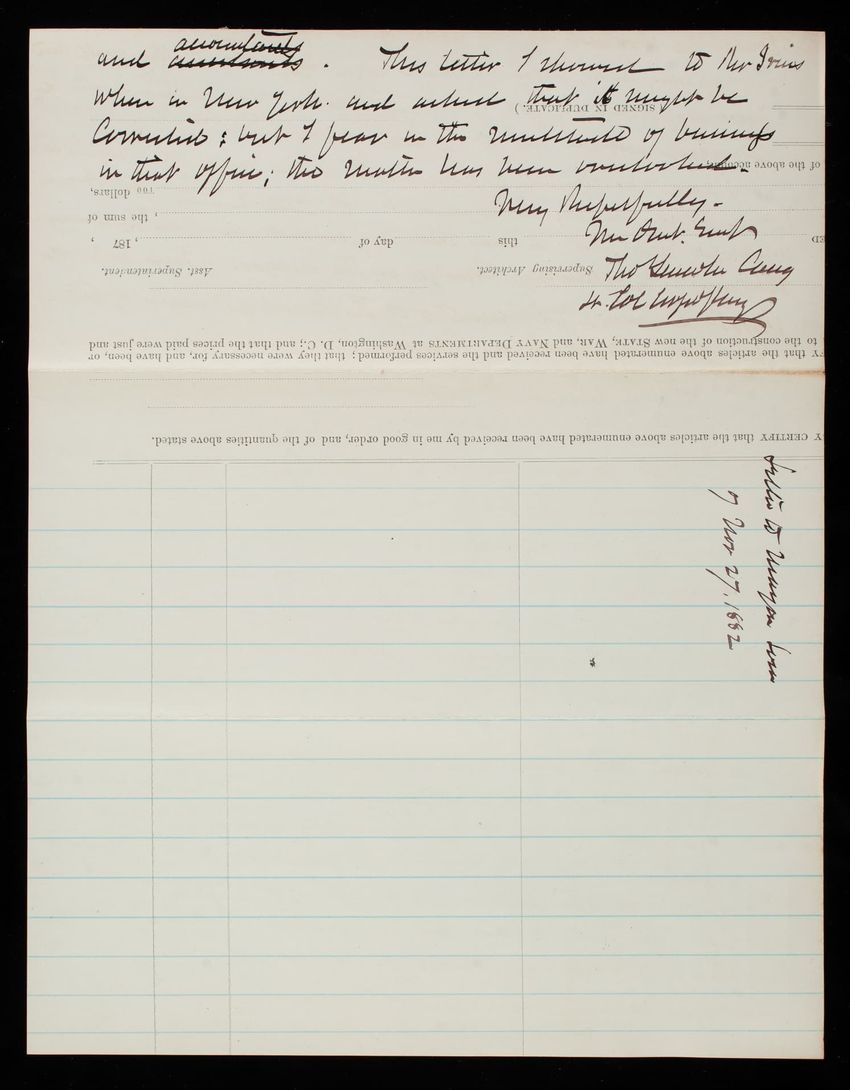 and accountants assistants. This letter I showed to Mr Ivins
when in New York. and asked that it might be
Corrected; but I fear in the multitude of business
in that office; the matter has been overlooked.
Very Respectfully.
Yr Obt. Servt
Tho Lincoln Casey
Lt. Col Corps of Eng
Letter to Mayor
of Nov 27, 1882
(SIGNED IN DUPLICATE.)
of the above account,
100 dollars,
, the sum of
ED this day of , 187 ,
Supervising Architect. Asst. Superintendent.
Y that the articles above enumerated have been received and the services performed; that they were necessary for, and have been, or
to the construction of the new STATE, WAR, and NAVY DEPARTMENTS at Washington, D. C.; and that the prices paid were just and
Y CERTIFY that the articles above enumerated have been received by me in good order, and of the quantities above stated.